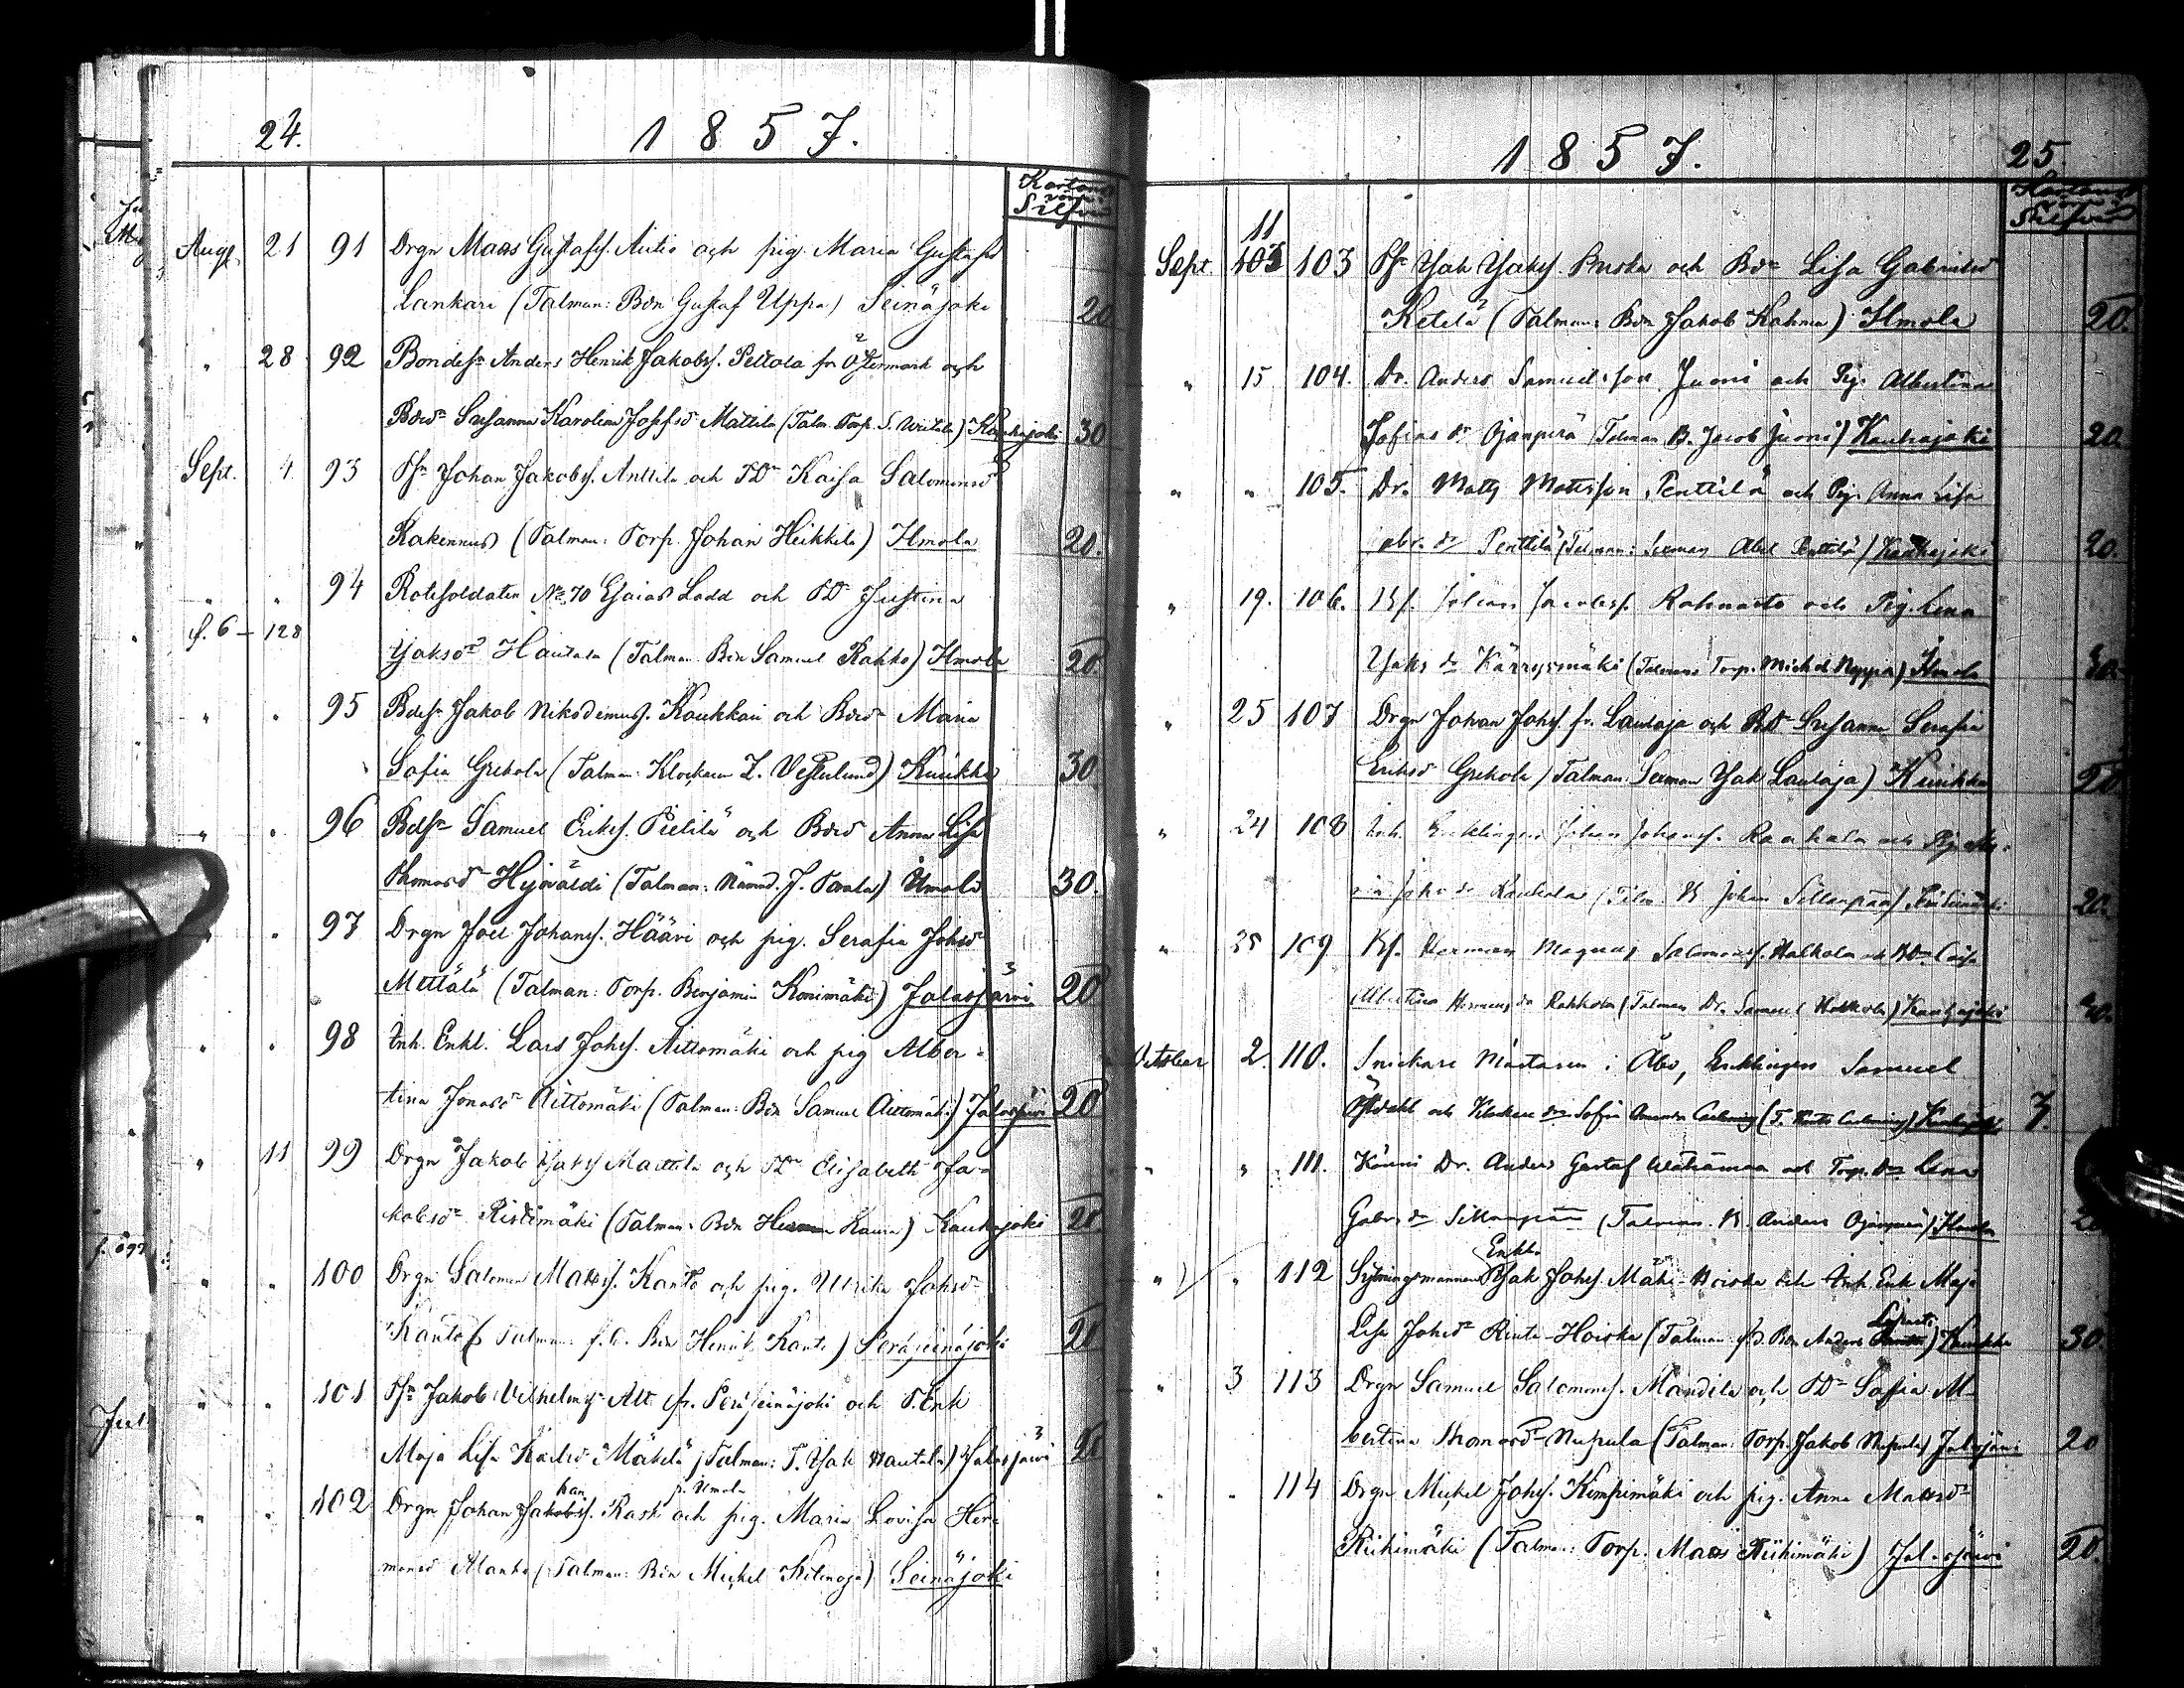 24. 1857.
Silfver
Aug. 21 91 Drgn Maths Gustafss. Autio och pig. Maria Gustafsd
Lankari (Talman: Bdn Gustaf Uppa) Seinäjoki 20
" 28 92 Bondes. Anders Henrik Jakobss. Peltola fr. Östermark och
Bdrd Susanna Karolina Josefsd Mattila (Talm. Torp. S. ) Kauhajoki 30
Sept. 4 93 Ts. Johan Jakobss. Anttila och TDr Kaisa Salomonsd
Rakennus (Talman: Torp. Johan Heikkilä) Ilmola 20.
" " 94 Rotesoldaten No 70 Esaias Ladd och TDr Justina
f. 6 – 128
Yaksdr Hautala (Talman Bdn Samuel Rahko) Ilmola 20.
" " 95 Bdes. Jakob Nikodemuss. Koukkari och Bdrdr Maria
Sofia Grekola (Talman: Klockaren Z. Vesterlund) Kurikka 30
" " 96 Bdsn Samuel Erikss. Pietilä och Bdrd Anna Lisa
Thomasdr Hyväldi (Talman: Nämnd. J. ) Ilmola 30.
" " 97 Drgn Joel Johanss. Hääri och pig. Serafia Johsdr
Mettälä (Talman: Torp. Benjamin Konimäki) Jalasjärvi 20
" " 98 Inh. Enkl. Lars Johss. Aittomäki och pig Alber-
tina Jonasdr Aittomäki (Talman: Bdn Samuel Aittomäki) Jalasjärvi 20
" 11 99 Drgn Jakob Yakss Mattila och TDr Elisabeth Ja-
kobsdr Ristimäki (Talman: Bdn Herman Kaura) Kauhajoki 20
" " 100 Drgn Salomon Matss. Kanto och pig. Ulrika Johsdr
Kanto (Talman: f.d. Bdn Henrik Kanto) Peräseinäjoki 20
" " 101 Ts. Jakob Vilhelmss Alt fr. Peräseinäjoki och T. Enk
Maja Lisa Karlsd Mäkelä (Talman: T. Yak Hautala) Jalasjärvi 20
" " 102 Drgn Johan Jakobss. Rask fr. Ilmola och pig. Maria Lovisa Her-
mansd Alanko (Talman: Bdn Michel Kilinoja) Seinäjoki
1857. 25.
Silfver
11
Sept. 103 103 Ts. Yak Yakss. Buska och Bdr Lisa Gabrielsd
Ketelä (Talman: Bdn Jakob Kahma) Ilmola 20.
" 15 104. Dr. Anders Samuelsson Juoni och Pig. Albertina
Josias dr Ojanperä (Talman B. Jacob Juoni) Kauhajoki 20.
" " 105. Dr. Matts Mattsson Penttilä och Pig. Anna Lisa
Gabr. dr Penttilä (Talman: Sexman Abel Penttilä) Kauhajoki 20.
" 19. 106. Bs. Johan Jacobss. Rahnasto och Pig. Lena
Yaks dr Kärrysmäki (Talman Torp. Michel Nyppä) Ilmola
" 25 107 Drgn Johan Johss fr. Lautaja och BDr Susanna Serafia
Eriksd Grekola (Talman: Sexman Yak Lautaja) Kurikka 20
" 24 108 Inh. Enklingen Johan Johanss. och Pig. Ma-
ria Johs dr (Talm. B. Johan Sillanpää) 20.
" 25 109 Bs. Herman Magnus Salomonss. Halkola och BDr Caisa
Albertina Hermans dr Rahkola (Talman Dr. Samuel Halkola) Kauhajoki
October 2. 110. Snickare Mästaren i Åbo, Enklingen Samuel
och Klockare dr Sofia Amanda 7.
" " 111. Könni Dr. Anders Gustaf och Torp. Dr Lena
Gabr. dr Sillanpää (Talman B. Anders Ojanperä) Ilmola
" " 112 Sytningsmannen Enkl. Yak Johss. Mäki-Hoiska och Inh. Enk Maja
Lisa Johsdr Rinta-Hoiska (Talman: f.d. Bdn Anders ) Kurikka 30.
" 3 113 Drgn Samuel Salomonss. Mandila och TDr Sofia Al-
bertina Thomasdr Nupula (Talman: Torp. Jakob Nupula) Jalasjärvi 20
" " 114 Drgn Michel Johss. Kempimäki och pig. Anna Matsdr
Riihimäki (Talman: Torp. Mats Riihimäki) Jalasjärvi 20.